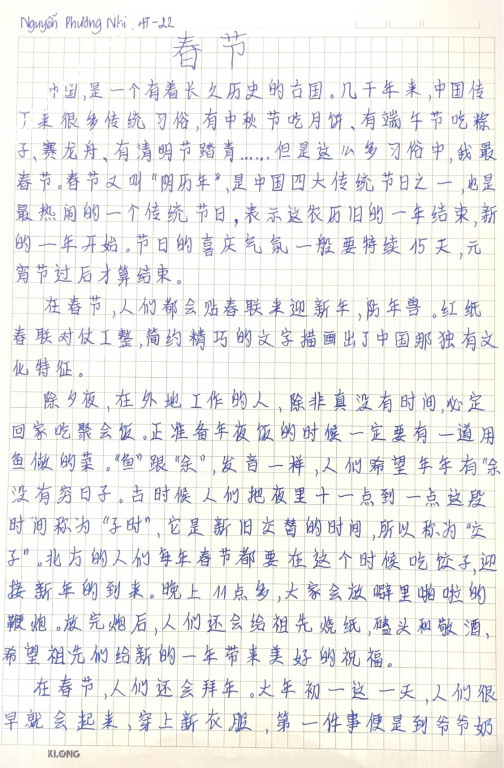 Nguyễn Phương Nhi. 4T-22
春节
中国,是一个有着长久历史的古国。几千年来,中国传
了来很多传统习俗,有中秋节吃月饼、有端午节吃粽
子、赛龙舟、有清明节踏青……但是这么多习俗中,我最
春节。春节又叫“阴历年”,是中国四大传统节日之一,也是
最热闹的一个传统节日,表示这农历旧的一年结束,新
的一年开始。节日的喜庆气氛一般要持续15天,元
宵节过后才算结束。
在春节,人们都会贴春联来迎新年,防年兽。红纸
春联对仗工整,简约精巧的文字描画出了中国那独有文
化特征。
除夕夜,在外地工作的人,除非真没有时间,必定
回家吃聚会饭。正准备年夜饭的时候一定要有一道用
鱼做的菜。“鱼”跟“余”,发音一样,人们希望年年有“余
没有穷日子。古时候人们把夜里十一点到一点这段
时间称为“子时”,它是新旧交替的时间,所以称为“交
子”。北方的人们每年春节都要在这个时候吃饺子,迎
接新年的到来。晚上11点多,大家会放噼里啪啦的
鞭炮。放完炮后,人们还会给祖先烧纸,磕头和敬酒,
希望祖先们给新的一年带来美好的祝福。
在春节,人们还会拜年。大年初一这一天,人们很
早就会起来,穿上新衣服,第一件事便是到爷爷奶
KLONG